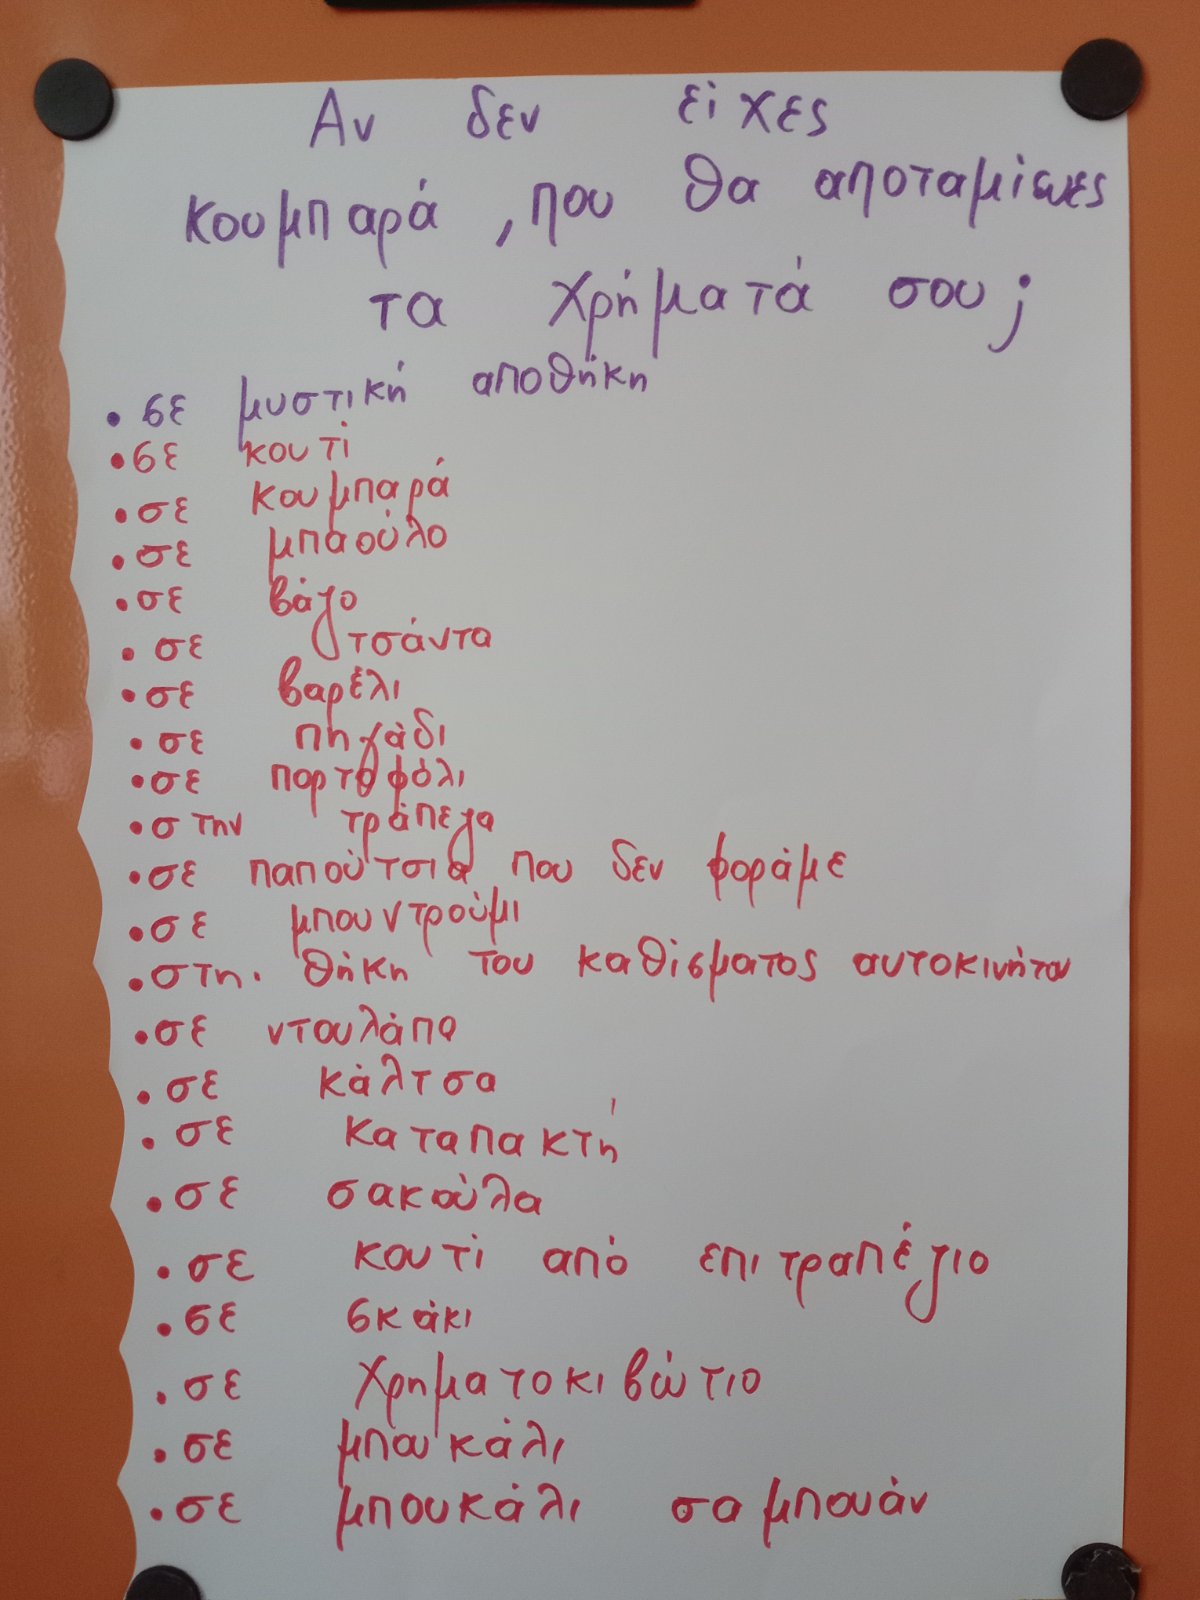 Αν δεν είχες
κουμπαρά, που θα αποταμίευες
τα χρήματά σου;
• σε μυστική αποθήκη
• σε κουτί
• σε κουμπαρά
• σε μπαούλο
• σε βάζο
• σε τσάντα
• σε βαρέλι
• σε πηγάδι
• σε πορτοφόλι
• στην τράπεζα
• σε παπούτσια που δεν φοράμε
• σε μπουντρούμι
• στη. θήκη του καθίσματος αυτοκινήτου
• σε ντουλάπα
• σε κάλτσα
• σε καταπακτή
• σε σακούλα
• σε κουτί από επιτραπέζιο
• σε σκάκι
• σε χρηματοκιβώτιο
• σε μπουκάλι
• σε μπουκάλι σαμπουάν